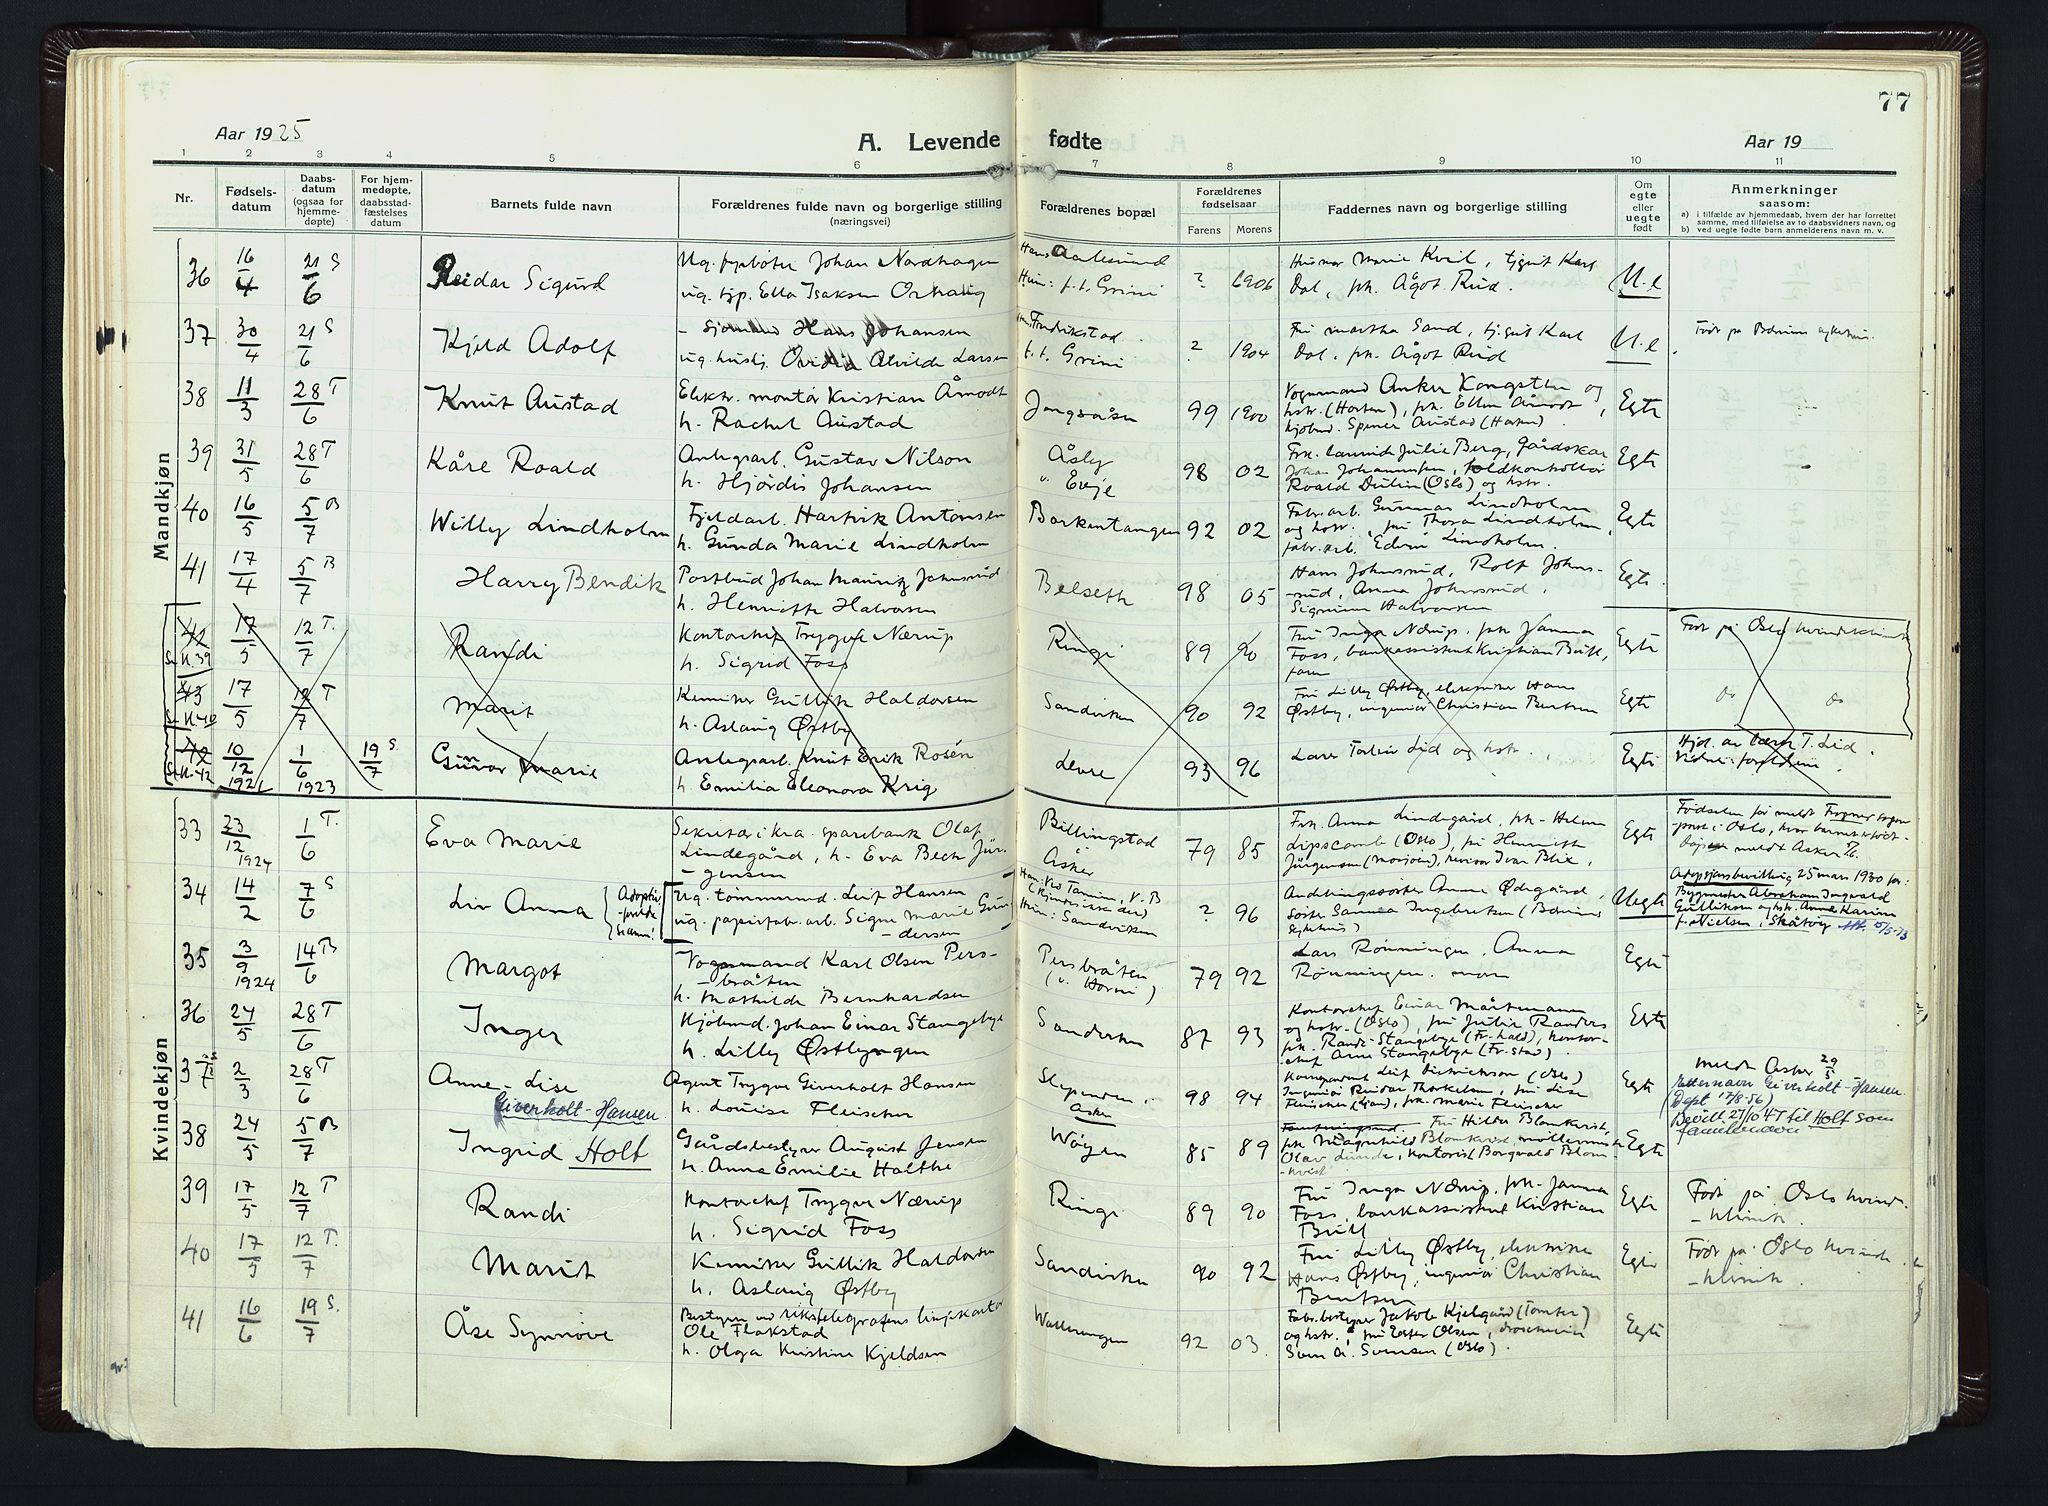 77
Aar 1925
A. Levende fødte
Aar 19
1 2 3 4 5 6 7 8 9 10 11
Nr.
Fødsels-
datum
Daabs-
datum
(ogsaa for
hjemme-
døpte)
For hjem-
medøpte,
daabsstad-
fæstelses
datum
Barnets fulde navn
Forældrenes fulde navn og borgerlige stilling
(næringsvei)
Forældrenes bopæl
Forældrenes
fødselsaar
Farens Morens
Faddernes navn og borgerlige stilling
Om
egte
eller
uegte
født
Anmerkninger
saasom:
a) i tilfælde av hjemmedaab, hvem der har forrettet
samme, med tilføielse av to daabsvidners navn, og
b) ved uegte fødte barn anmelderens navn m. v.
Mandkjøn
36 16/4 21/6 S
Reidar Sigurd
Ug. fyrbøter Johan Nordhagen
ug. tjp. Ella Isaksen
Aalesund
t. t. Grini
? 1906
Marie Kvil, tjgut Karl
Dal, frk. Ågot Rud.
U.e
37 30/4 21/6 S
Kjeld Adolf
- Sjømand Hans Johansen
ug. Ovidia Alvilde Larsen
Fredrikstad
t. t. Grini
? 1904
Fru Martha Sand, tj.gut Karl
Dal, frk. Ågot Rud
U.e
Født på Bærum sykehus.
38 11/3 28/6 T
Knut Austad
Elektr. montør Kristian Åmodt
h. Rachel Austad
Jongsåsen
99 1900
Vognmand Anker Kongsten og
hstr. (Horten), frk. Ellen Åmodt,
kjøbmd. Austad (Horten)
Egte
39 31/5 28/6 T
Kåre Roald
Anlegsarb. Gustav Nilson
h. Hjørdis Johansen
Åsly
v. Evje
98 02
Frk. Laurid Julie Berg, gårdskar
Johan Johannessen,
Roald Dulin (Oslo) og hstr.
Egte
40 16/5 5/7 B
Willy Lindholm
Fjeldarb. Hartvik Antonsen
h. Gunda Marie Lindholm
Borkentangen
92 02
Fabr.arb. Gunnar Lindholm
og hstr., fru Thora Lindholm,
fabr.arb. Edvin Lindholm.
Egte
41 17/4 5/7 B
Harry Bendik
Postbud Johan Mauritz Johnsrud
h. Henriette Halvorsen
Belseth
98 05
Hans Johnsrud, Rolf Johns-
-rud, Anna Johnsrud,
Sigrun Halvorsen
Egte
42 17/5 12/7 T.
Se K. 39
Randi
Kontorchef Trygve Nærup
h. Sigrid Foss
Ringi
89 90
Fru Inga Nærup, frk Janna
Foss, bankassistent Kristian Bull,
faren
Egte
Født på Oslo kvindeklinik
43 17/5 12/7 T
Se K. 40
Marit
Kemiker Gullik Haldorsen
h. Aslaug Østby
Sandviken
90 92
Fru Lilly Østby, elektriker Hans
Østby, ingeniør Christian Bentsen
Egte
Do Do
42 10/12 1921 1/6 1923 19/7 S.
Se K. 42
Gunvor Marie
Anlegsarb. Knut Erik Rosén
h. Emilia Eleonora Krig
Levre
93 96
Lærer Torleiv Lid og hstr.
Egte
Hjd. av lærer T. Lid.
Vidne: foreldrene.
Kvindekjøn
33 23/12 1924 1/6 T.
Eva Marie
Sekretær i Kra. sparebank Olaf
Lindegård, h. Eva Bech Jür-
-gensen
Billingstad
Asker
79 85
Frk. Anna Lindegård, frk. Helene
Lipscomb (Oslo), fru Henriette
Jürgensen (Mosjøen), revisor Ivar Blix,
Egte
Fødselen før meldt Frogner sogne-
prest i Oslo, hvor barnet er født
34 14/2 7/6 S
Liv Anna
Ug. tømmermd. Leif Hansen
ug. papirfabr.arb. Signe Marie Gun-
-dersen
Hun: Sandviken
? 96
Anna Ødegård,
søster Sanna Ingebretsen (Bærum
sykehus)
Uegte
Adopsjonsbevilling 25 mars 1930 for:
Byggmester Abraham Ingvald
Gulliksen og hstr. Anne Karine
f. Nielsen, Skåtøy
35 3/9 1924 14/6 B
Margot
Vognmand Karl Olsen Pers-
-bråten
h. Mathilde Bernhardsen
Persbråten
79 92
Lars Rønningen, Anna
Rønningen, moren
Egte
36 24/5 28/6 T
Inger
Kjøbmd. Johan Einar Stangebye
h. Lilly Østbyngen
Sandviken
87 93
Kontorchef Einar Mårtmann
og hstr. (Oslo), fru Julie Randers
frk. Randi Stangebye (Fr.hald), kontor-
chef Arne Stangebye (Fr.stad).
Egte
37 2/3 28/6 T
Anne-Lise
Giverholt-Hansen.
Agent Trygve Giverholt Hansen
h. Louise Fleischer
Slependen.
Asker
98 94
Korrespondent Leif Dietrichson (Oslo)
Ingeniør Reidar Thorkelsen, fru Lise
Fleischer, frk. Marie Fleischer
Egte
Meldt Asker 29/5
Etternavn Giverholt-Hansen.
(Dept 17/8 56)
38 24/5 5/7 B
Ingrid Holt
Gårdsbestyrer Anqvist Jensen
h. Anna Emilie Holthe
Wøyen
85 89
Fru Hilda Blomkvist,
frk Magnhild Blomkvist,
Olav Lunde, kontorist Borgvald Blom-
-kvist
Egte
Bevill. 27/10 47 til Holt som
familienavn
39 17/5 12/7 T
Randi
Kontorchef Trygve Nærup
h. Sigrid Foss
Ringi
89 90
Fru Inga Nærup, frk. Janna
Foss, bankassistent Kristian
Bull
Egte
Født på Oslo kvinde-
-klinik.
40 17/5 12/7 T.
Marit
Kemiker Gullik Haldorsen
h. Aslaug Østby
Sandviken
90 92
Fru Lilly Østby, elektriker
Hans Østby, ingeniør Christian
Bentsen
Egte
Født på Oslo kvinde-
-klinik.
41 16/6 19/7 S.
Åse Synnøve
Bestyrer ved rikstelegrafens linjekontor
Ole Flakstad
h. Olga Kristine Kjeldsen
92 03.
Fabr.bestyrer Jakob Kjelgård (Tomter)
og hstr., fru Ester Olsen,
Sven A. Svensen (Oslo).
Egte